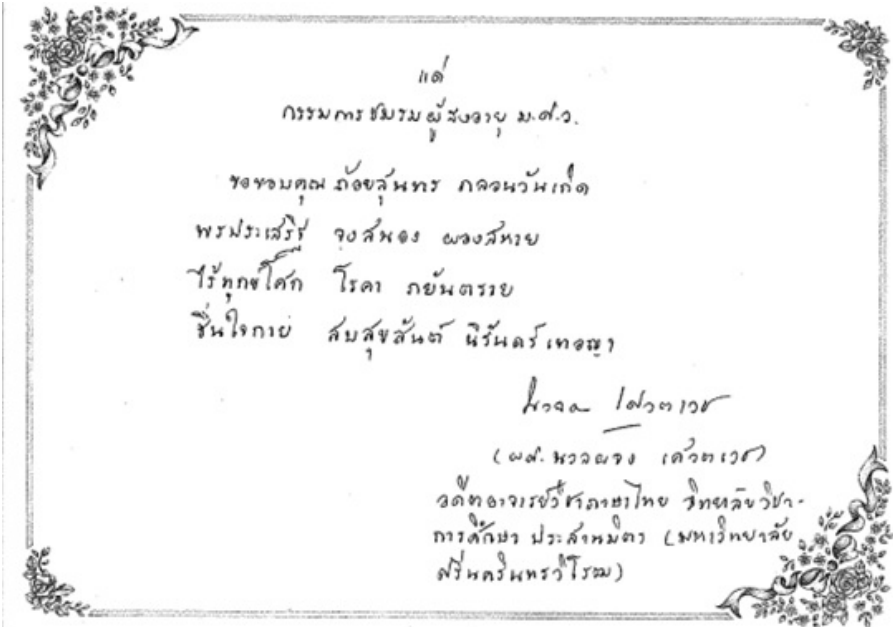 แด่
กรรมการชมรมผู้สูงอายุ ม.ศ.ว.
ขอขอบคุณ ถ้อยสุนทร กลอนวันเกิด
พรประเสริฐ จงสนอง ผองสหาย
ไร้ทุกข์โศก โรคา ภยันตราย
ชื่นใจกาย สบสุขสันต์ นิรันดร์เทอญฯ
(ผศ. นวลผจง เศวตเวช)
อดีตอาจารย์วิชาภาษาไทย วิทยาลัยวิชา-
การศึกษา ประสานมิตร (มหาวิทยาลัย
ศรีนครินทรวิโรฒ)